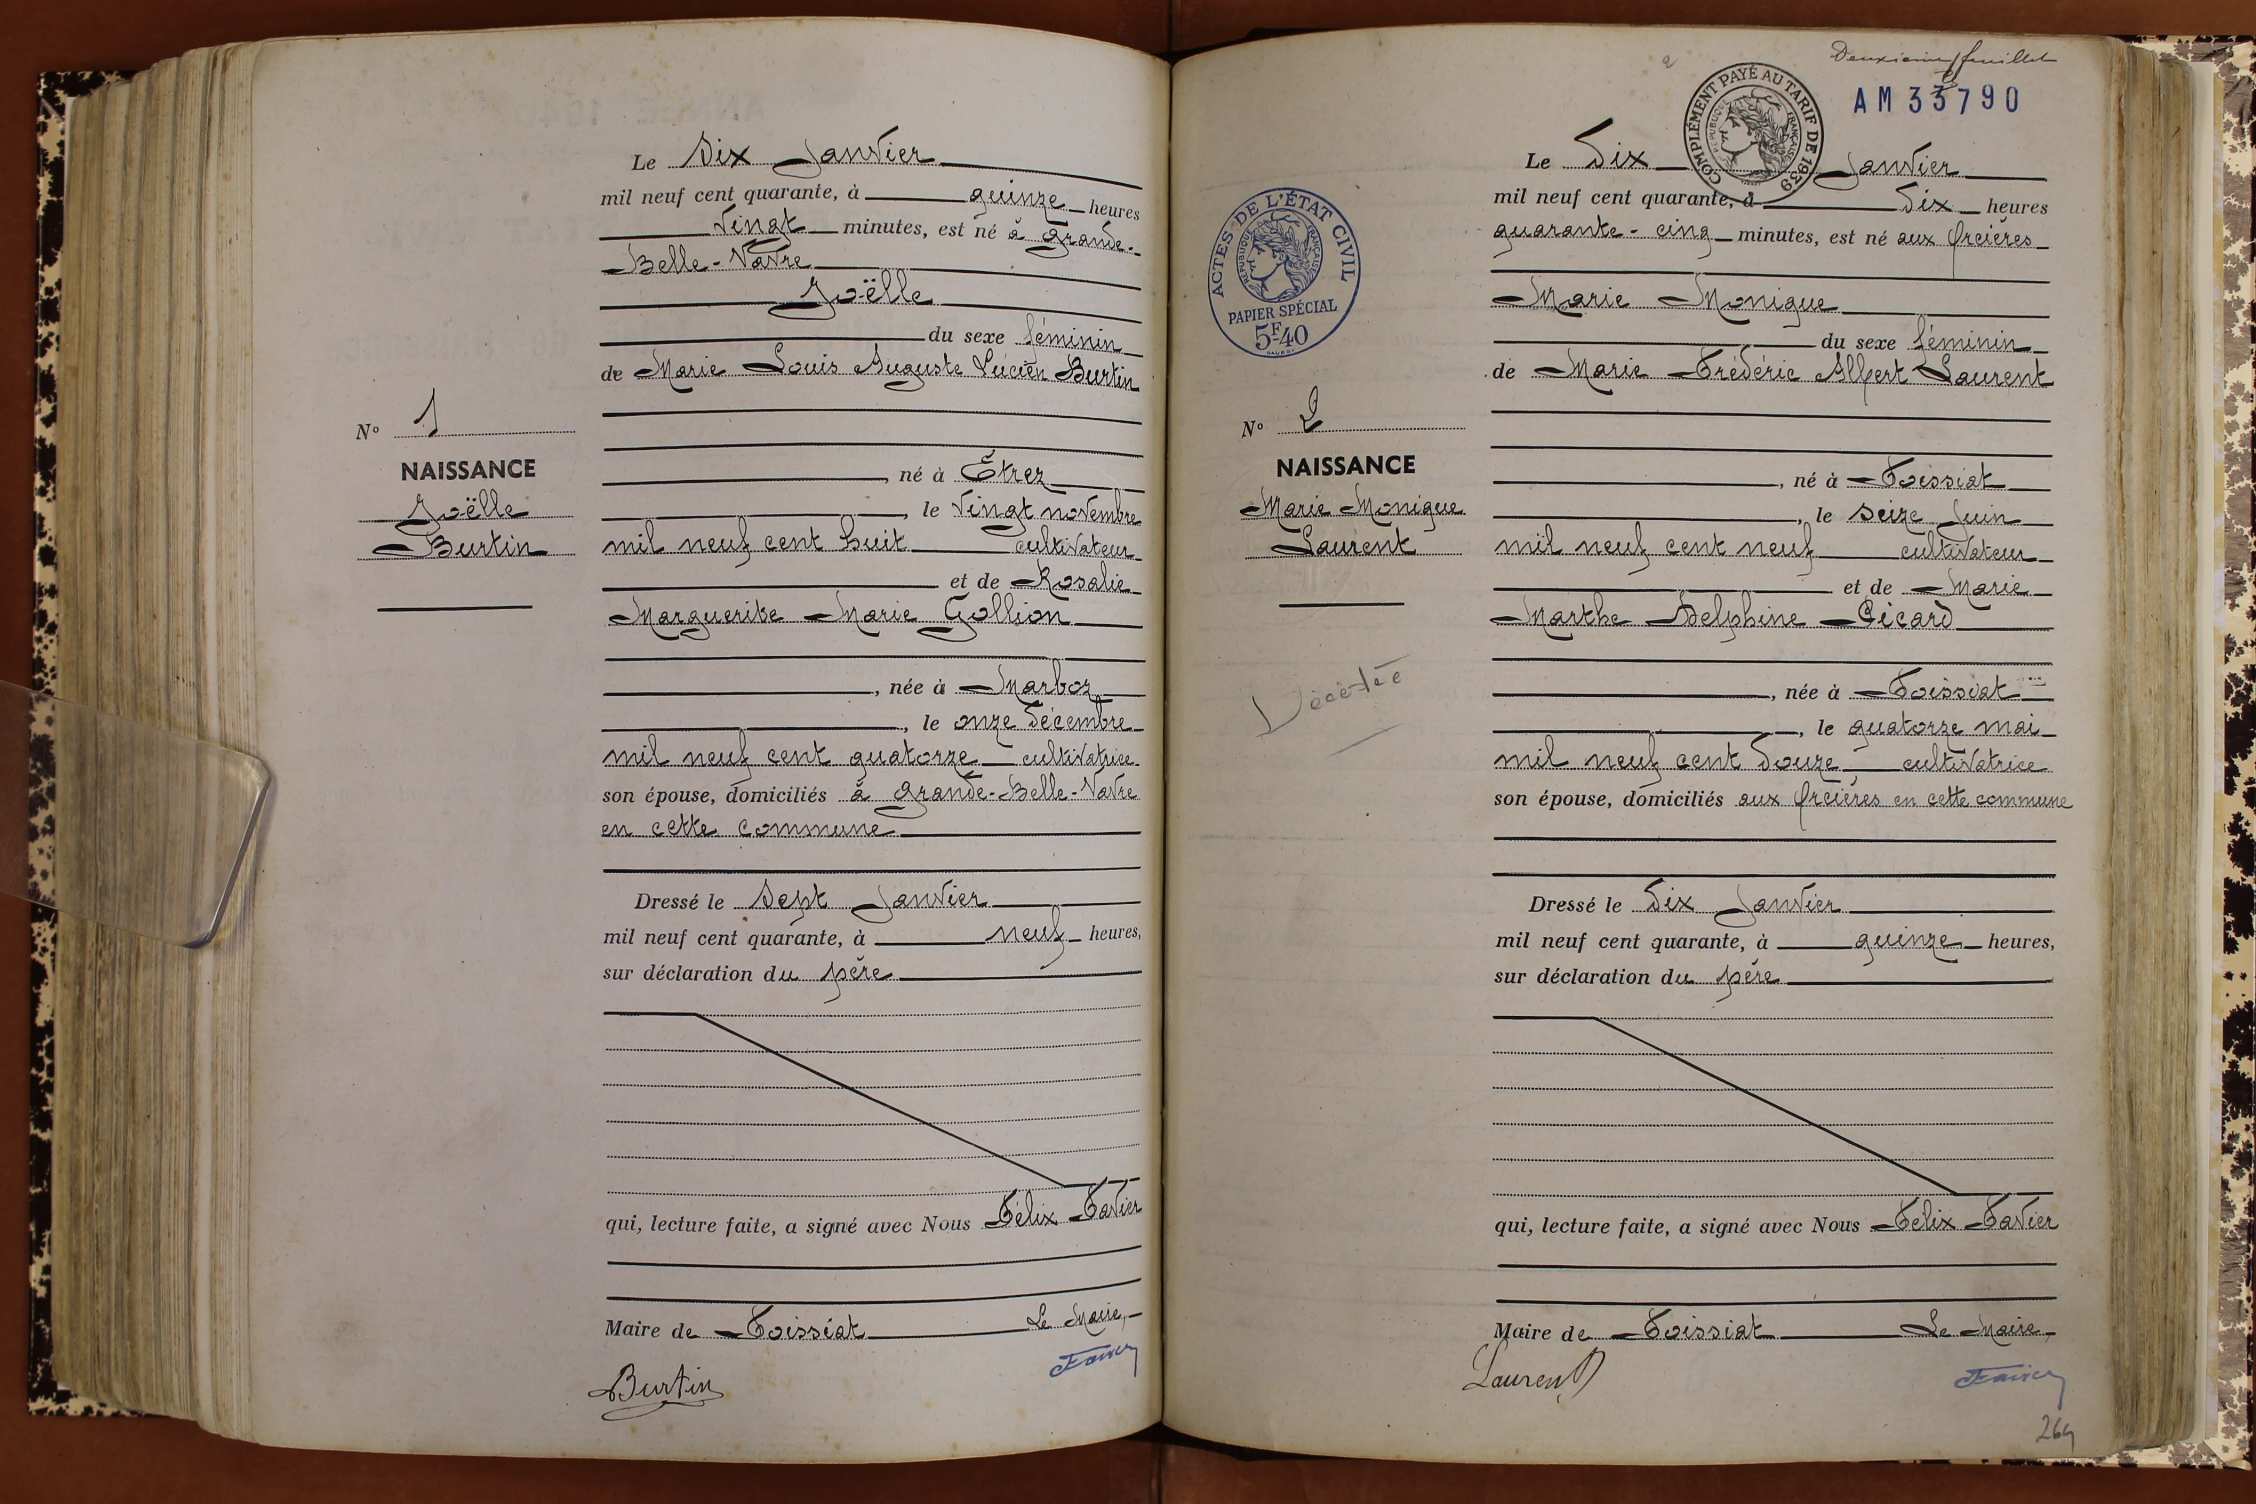 Le six Janvier
mil neuf cent quarante, à quinze heures
vingt minutes, est né à Grande-
Belle-Vavre
Joëlle
du sexe féminin
de Marie Louis Auguste Lucien Burtin
né à Étrez
, le vingt novembre
mil neuf cent huit cultivateur
et de Rosalie
Marguerite Marie Gollion
, née à Marboz
, le onze décembre
mil neuf cent quatorze cultivatrice
son épouse, domiciliés à Grande-Belle-Vavre
en cette commune
Dressé le sept Janvier
mil neuf cent quarante, à neuf heures,
sur déclaration du père
qui, lecture faite, a signé avec Nous Félix Favier
Maire de Foissiat Le Maire,
Burtin Favier
N° 1
NAISSANCE
Joëlle
Burtin
Deuxième feuillet
2
AM 33790
COMPLÉMENT PAYÉ AU TARIF DE 1939
RÉPUBLIQUE FRANÇAISE
ACTES DE L'ÉTAT CIVIL
RÉPUBLIQUE FRANÇAISE
PAPIER SPÉCIAL
5F40
Le dix Janvier
mil neuf cent quarante, à dix heures
quarante-cinq minutes, est né aux Orcières
Marie Monique
du sexe féminin
de Marie Frédéric Albert Laurent
, né à Foissiat
, le seize Juin
mil neuf cent neuf cultivateur
et de Marie
Marthe Adelphine Picard
, née à Foissiat
, le quatorze mai
mil neuf cent douze cultivatrice
son épouse, domiciliés aux Orcières en cette commune
Dressé le dix Janvier
mil neuf cent quarante, à quinze heures,
sur déclaration du père
qui, lecture faite, a signé avec Nous Félix Favier
Maire de Foissiat Le Maire,
Laurent Favier
N° 2
NAISSANCE
Marie Monique
Laurent
Décédée
264